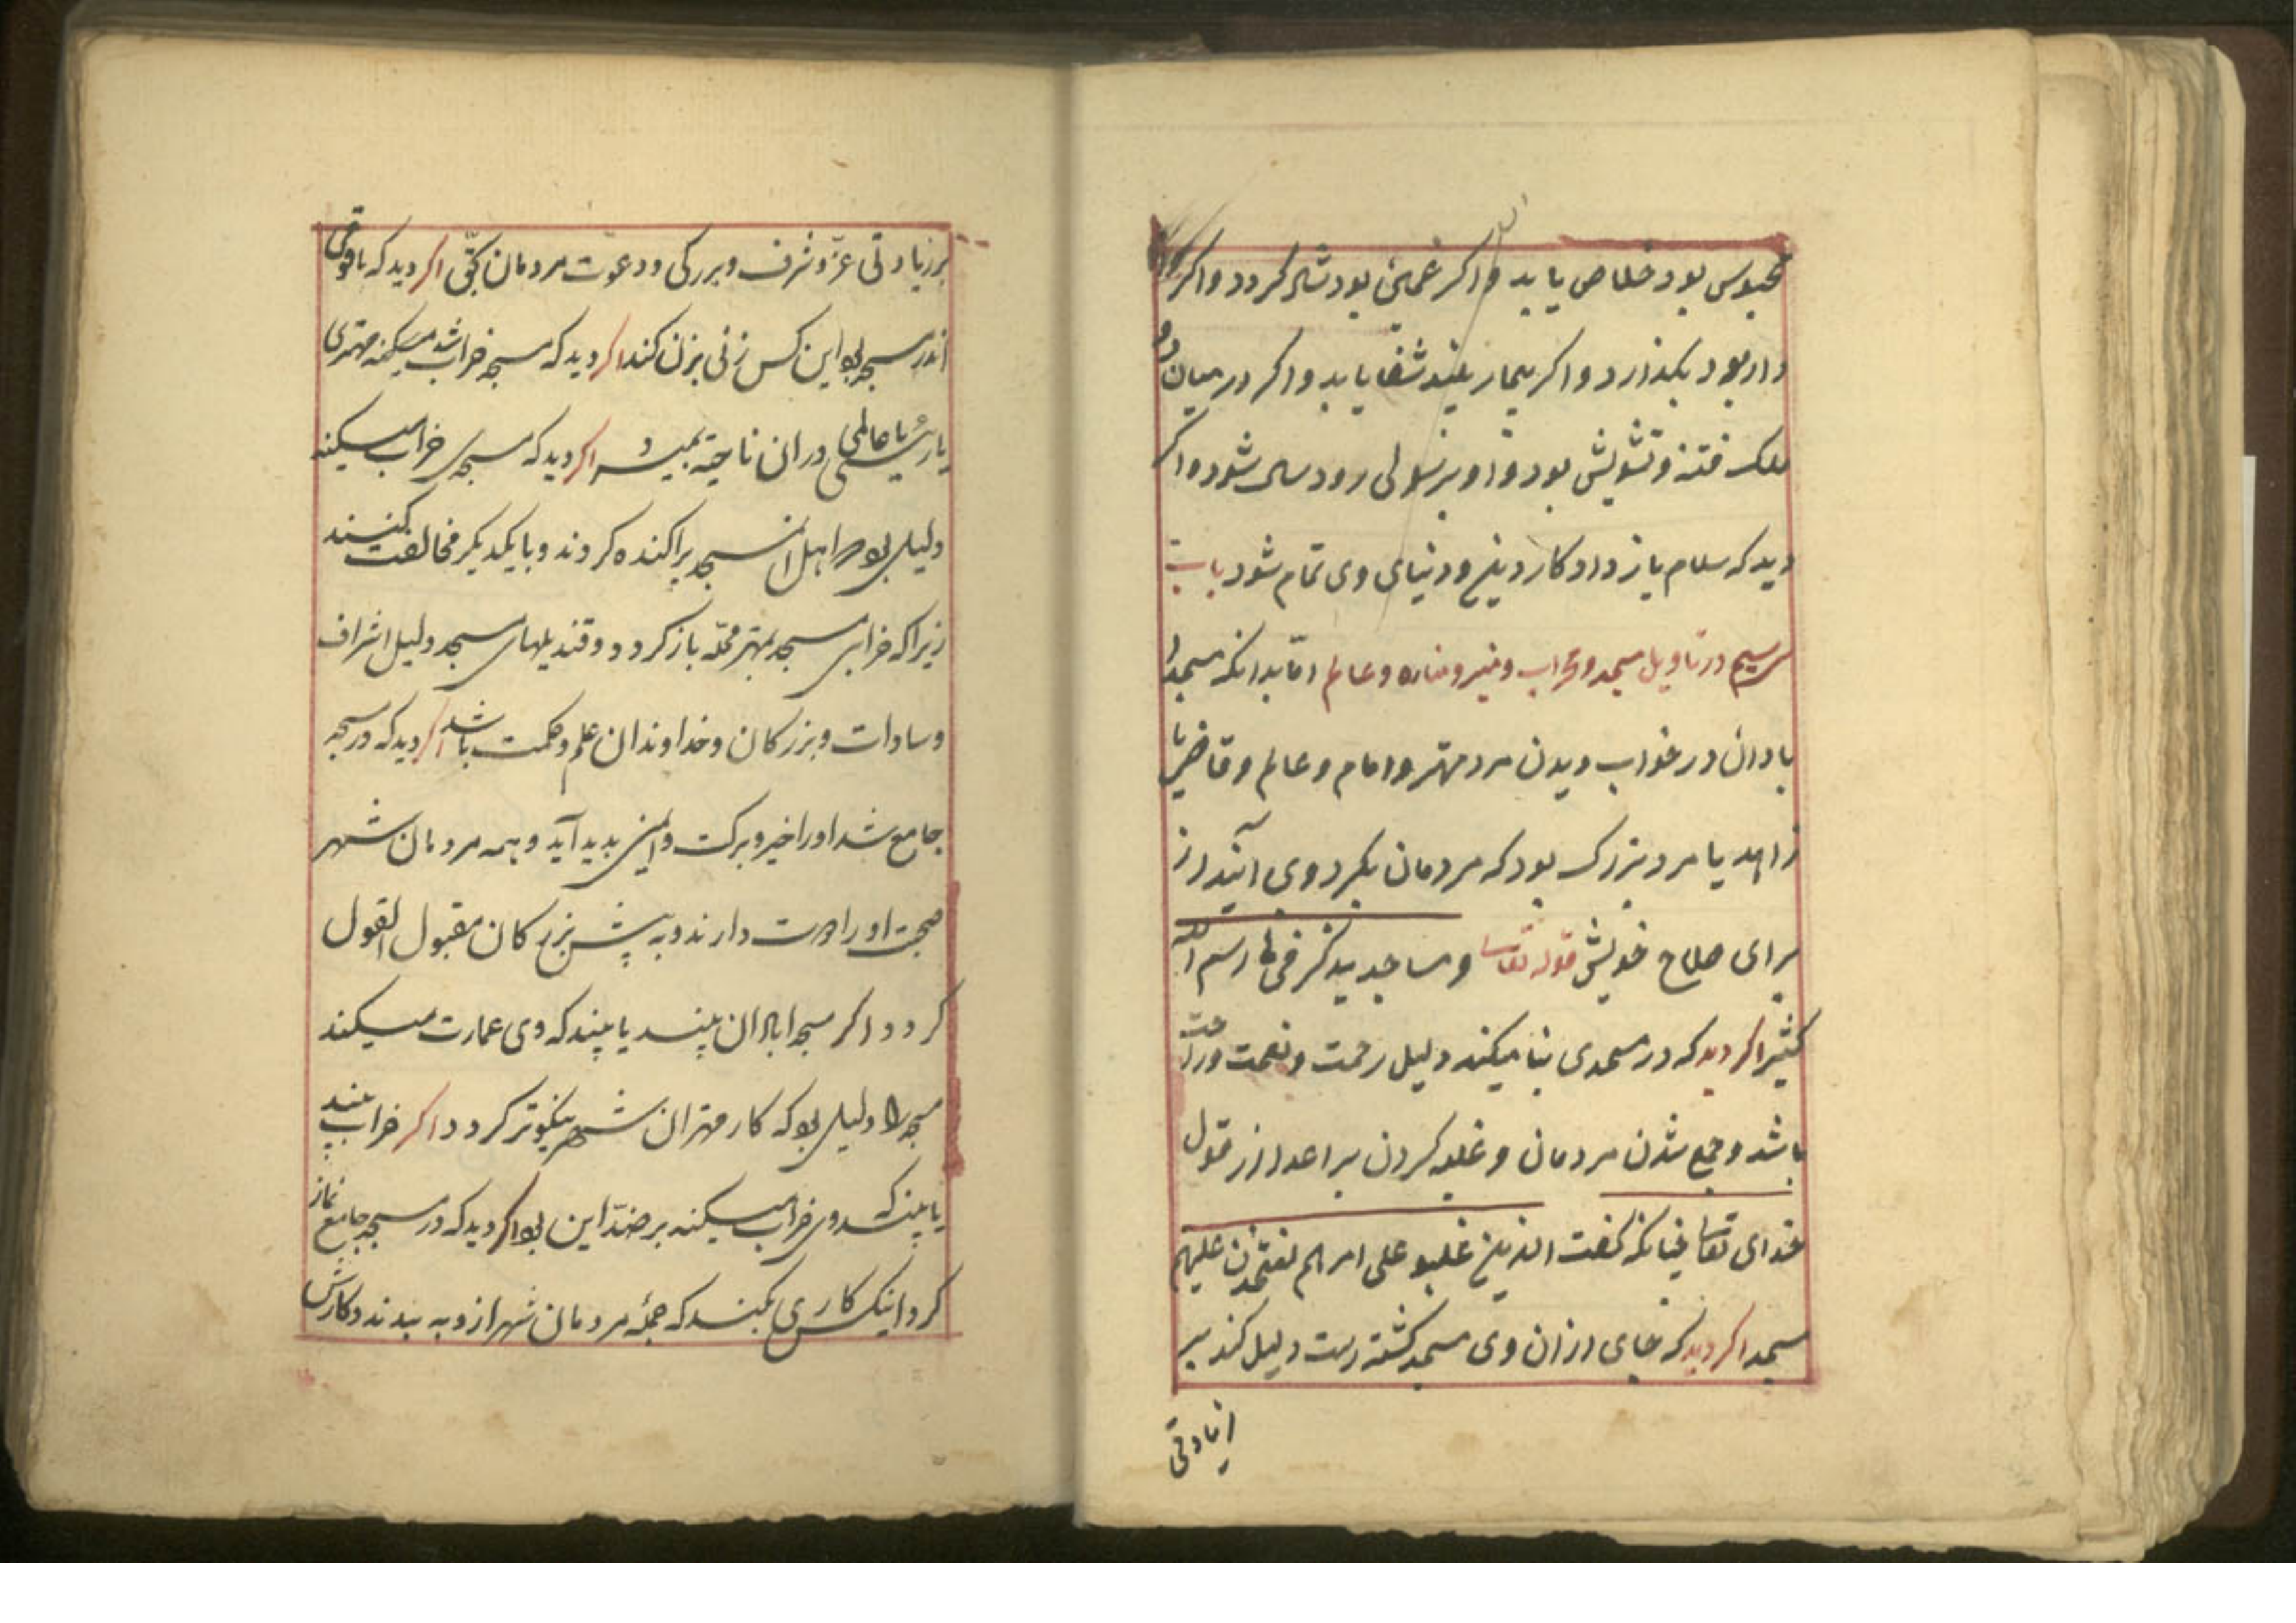 محبوس بود خلاص یابد و اکر غمین بود شاد کردد و اکر
دار بود بکذارد و اکر بیمار بیند شفا یابد و اکر در میان دو
ملک فتنه و تشویش بود و او برسولی رود شود و اکر
دید که سلام باز داد کار دین و دنیای وی تمام شود باب
در تاویل مسجد و محراب و منبر و مناره و عالم امّا بدانکه مسجد
بادان در خواب دیدن مرد مهتر و امام و عالم و قاضی یا
زاهد یا مرد بزرک بود که مردمان بکرد وی آیند از
برای صلاح خویش قوله تعالی و مساجد یذکر فیها اسم الله
کثیرا اکر دید که در مسجدی بنا میکند دلیل رحمت و نعمت و راحت
باشد و جمع شدن مردمان و غلبه کردن بر اعدا از قول
خدای تعالی چنانکه کفت الذین غلبو علی امرهم لنتخذن علیهم
مسجدا اکر دید که جای از ان وی مسجد کشته است دلیل کند بر
زیادتی
بر زیادتی عزّ و شرف و بزرکی و دعوت مردمان بحق اکر دید که با قومی
اندر مسجد بود این کس زنی بزن کند اکر دید که مسجد خراب شد میکنند مهتری
یا رئیسی یا عالمی در ان ناحیة بمیرد اکر دید که مسجدی خراب میکند
دلیل بود اهل ان مسجد پراکنده کردند و با یکدیکر مخالفت کنند
زیرا که خرابی مسجد بمهتر محلّه باز کردد و قندیلهای مسجد دلیل اشراف
و سادات و بزرکان و خداوندان علم و حکمت باشد اکر دید که در مسجد
جامع شد او را خیر و برکت و ایمنی پدید آید و همه مردمان شهر
صحبت او را دوست دارند و به پیش بزرکان مقبول القول
کردد اکر مسجد ابادان بیند یا بیند که وی عمارت میکند
مسجد را دلیل بود که کار مهتران شهر نیکوتر کردد اکر خراب بیند
یا بیند که وی خراب میکند بر ضدّ این بود اکر دید که در مسجد جامع نماز
کرد اینکس کاری بکند که جملهٔ مردمان شهر از و به بندند و کارش